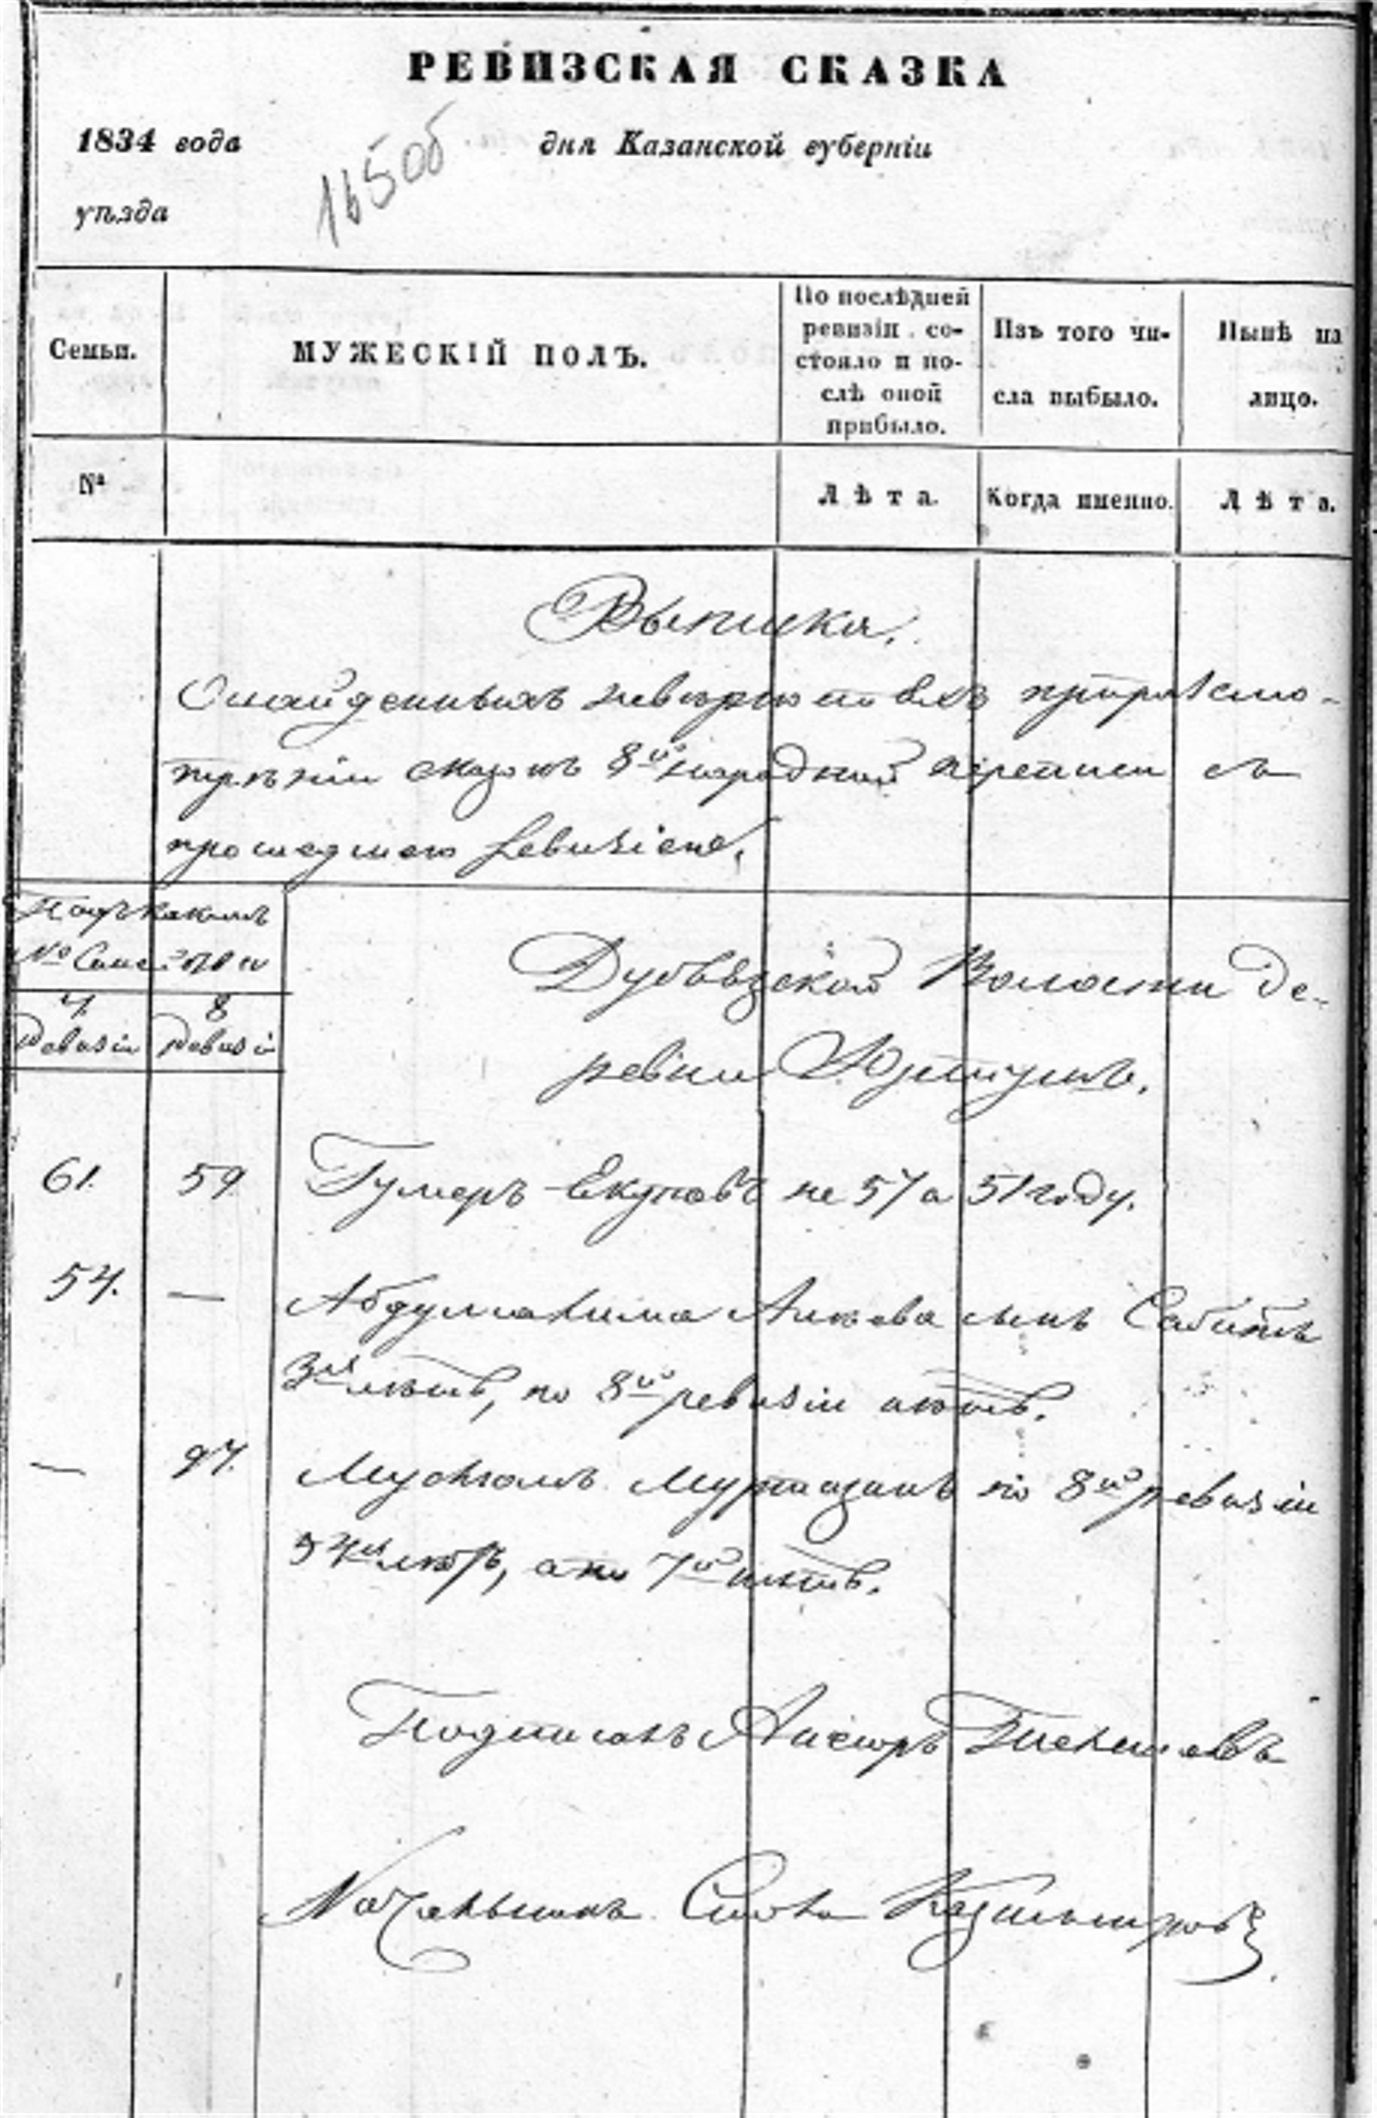 РЕВИЗСКАЯ СКАЗКА
1834 года дня Казанской губерніи
уѣзда
165об
Семьи. МУЖЕСКІЙ ПОЛЪ. По послѣдней ревизіи состояло и послѣ оной прибыло. Изъ того числа выбыло. Нынѣ на лицо.
№ Лѣта. Когда именно. Лѣта.
Выписка.
О найденныхъ невѣрностяхъ при разсмо-
трѣніи сказокъ 8й народной переписи съ
прошедшею ревизіею.
Подъ какимъ
№ Семейства
7 8
Ревизіи Ревизіи
Дубъязской Волости де-
ревни
61. 59 Гумеръ Екуповъ не 57 а 51 году.
54. — Абдулхалима Алкева сынъ Сабитъ
3хъ лѣтъ, по 8й ревизіи нѣтъ.
— 97. Муртазинъ по 8й ревизіи
54хъ лѣтъ, а по 7й нѣтъ.
Подписалъ
Начальникъ Стола